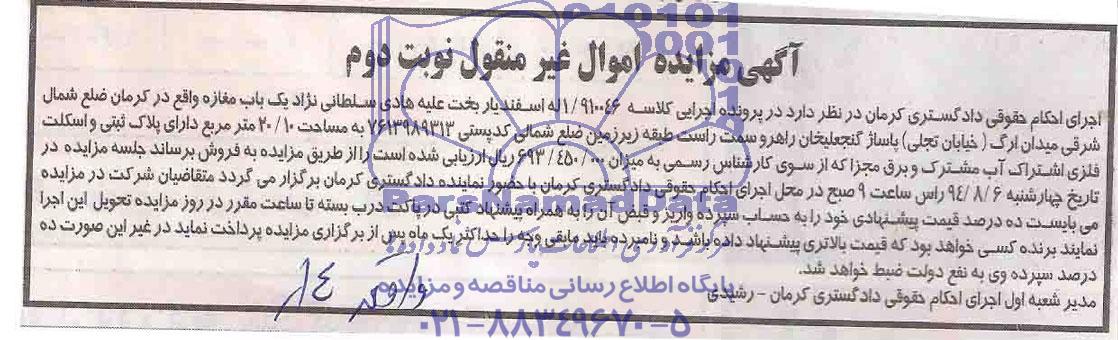 آگهی مزایده اموال غیر منقول نوبت دوم
اجرای احکام حقوقی دادگستری کرمان در نظر دارد در پرونده اجرایی کلاسه ۱/۹۱۰۰۴۶ له اسفندیار بخت علیه هادی سلطانی نژاد یک باب مغازه واقع در کرمان ضلع شمال
شرقی میدان ارگ ( خیابان تجلی) پاساژ گنجعلیخان راهرو سمت راست طبقه زیرزمین ضلع شمالی کدپستی ۷۶۱۳۹۸۹۳۱۳ به مساحت ۲۰/۱۰ متر مربع دارای پلاک ثبتی و اسکلت
فلزی اشتراک آب مشترک و برق مجزا که از سوی کارشناس رسمی به میزان ۶۹۳/۴۵۰/۰۰۰ ریال ارزیابی شده است را از طریق مزایده به فروش برساند جلسه مزایده در
تاریخ چهارشنبه ۹۴/۸/۶ راس ساعت ۹ صبح در محل اجرای احکام حقوقی دادگستری کرمان با حضور نماینده دادگستری کرمان برگزار می گردد متقاضیان شرکت در مزایده
می بایست ده درصد قیمت پیشنهادی خود را به حساب سپرده واریز و قبض آن را به همراه پیشنهاد کتبی در پاکت درب بسته تا ساعت مقرر در روز مزایده تحویل این اجرا
نمایند برنده کسی خواهد بود که قیمت بالاتری پیشنهاد داده باشد و نامبرده باید مابقی وجه را حداکثر یک ماه پس از برگزاری مزایده پرداخت نماید در غیر این صورت ده
درصد سپرده وی به نفع دولت ضبط خواهد شد.
مدیر شعبه اول اجرای احکام حقوقی دادگستری کرمان - رشیدی
ParsNamadData
پایگاه اطلاع رسانی مناقصه و مزایده
۰۲۱-۸۸۳۴۹۶۷۰-۵